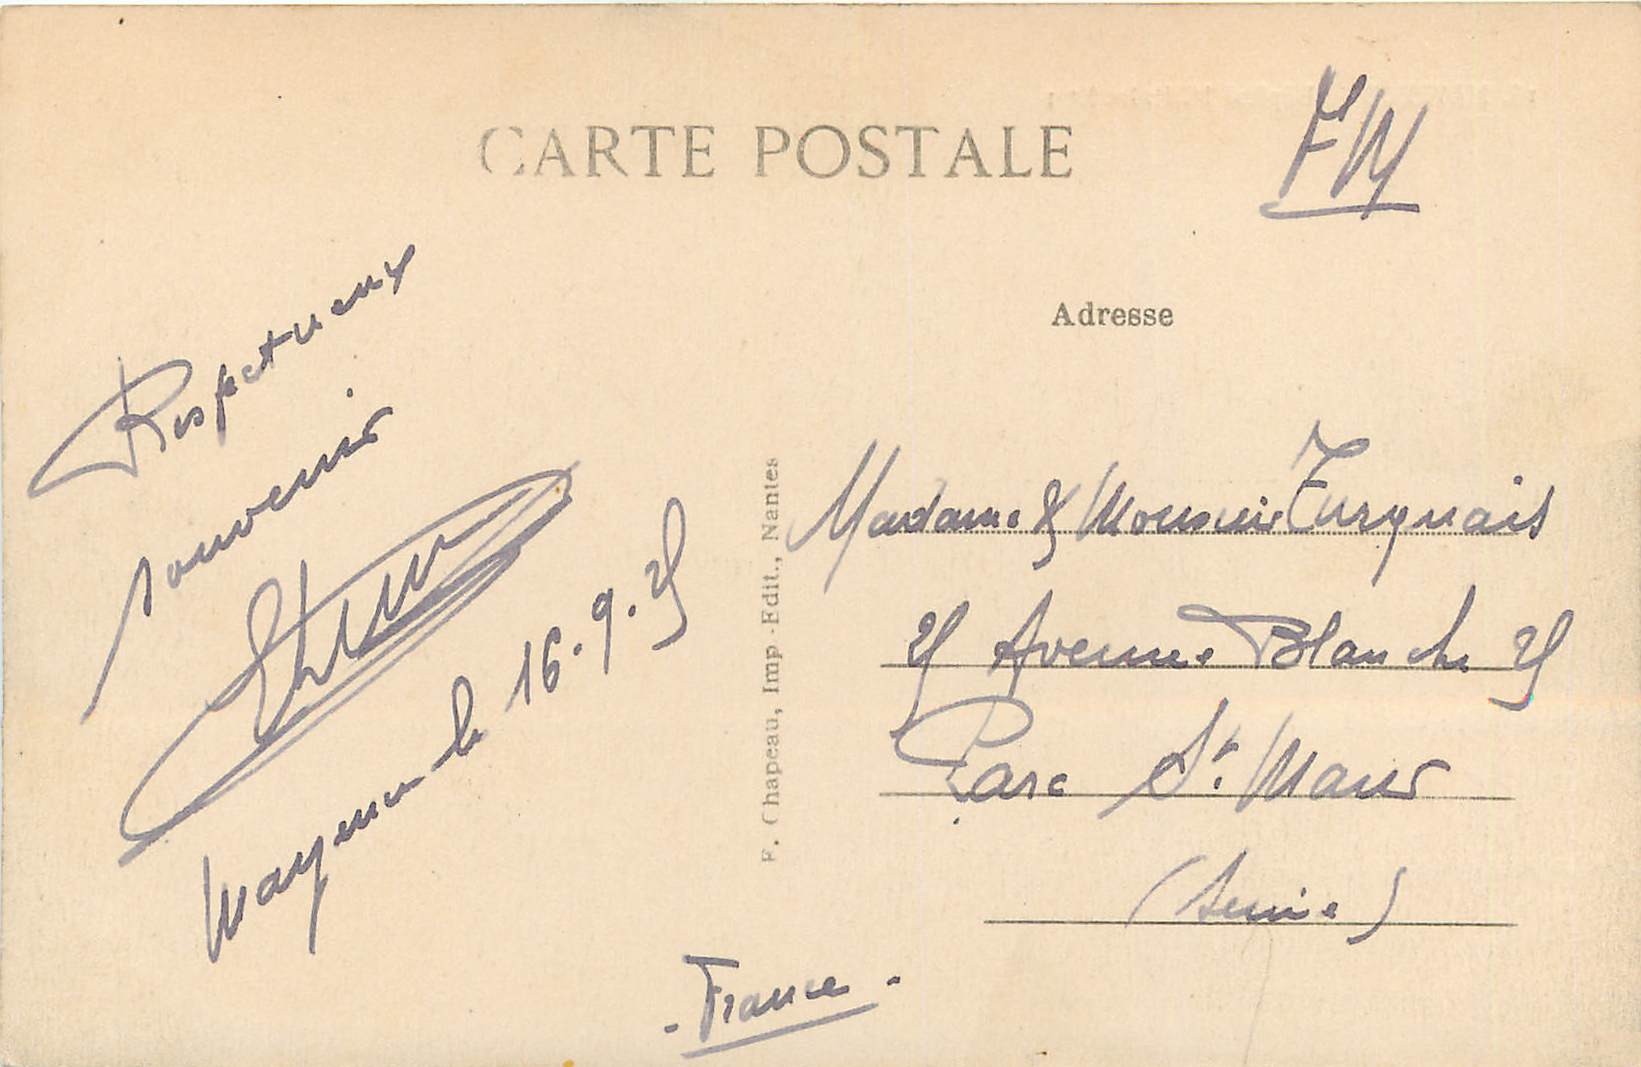 CARTE POSTALE
FM
Adresse
Respectueux
souvenir
Mayence le 16.9.25
F. Chapeau, Imp.-Edit., Nantes
Madame & Monsieur
25 Avenue Blanche 25
Parc St. Maur
(Seine)
- France -